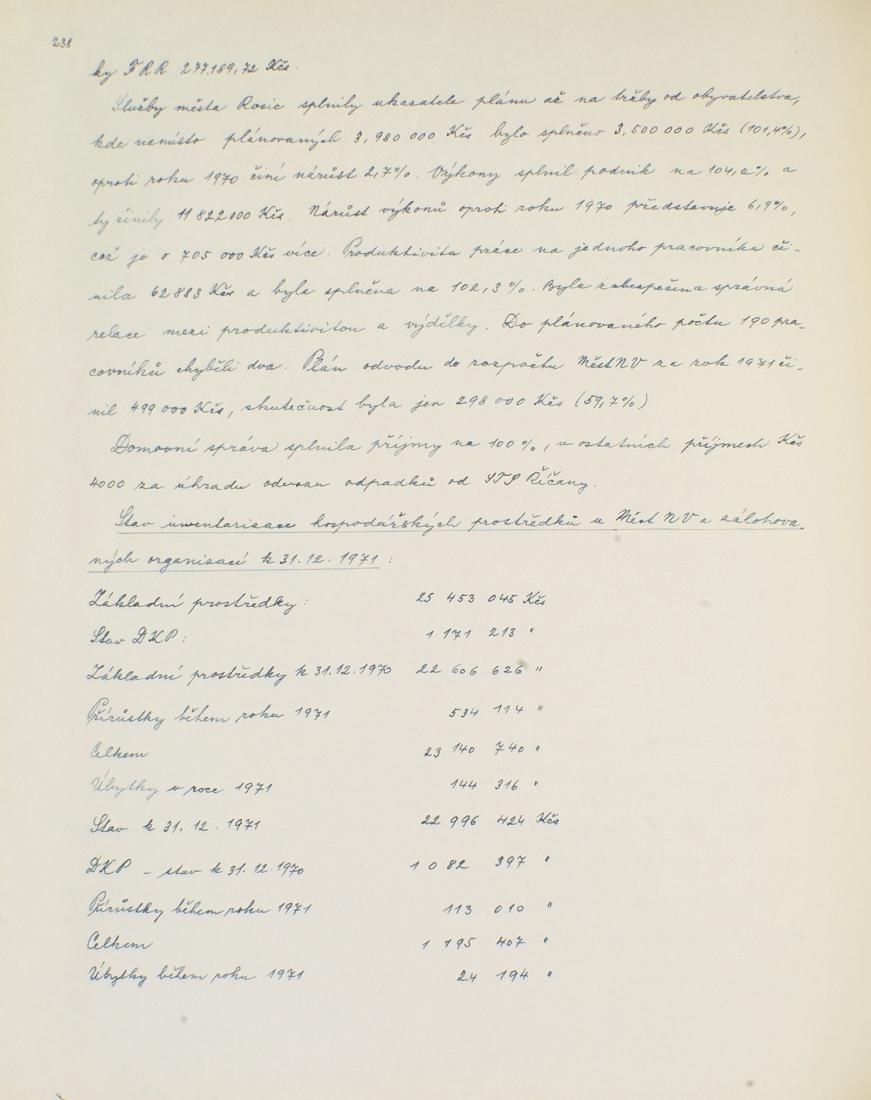 238
ky FRR 277.189,72 Kčs.
Služby města Rosic splnily ukazatele plánu až na tržby od obyvatelstva,
kde namísto plánovaných 3,980 000 Kčs bylo splněno 3,500 000 Kčs (101,4%),
oproti roku 1970 činí nárůst 2,7%. Výkony splnil podnik na 104,2% a
ty činily 11 822 000 Kčs. Nárůst výkonů oproti roku 1970 představuje 6,9%,
což je o 705 000 Kčs více. Produktivita práce na jednoho pracovníka či-
nila 62 883 Kčs a byla splněna na 102,3%. Byla zabezpečena správná
relace mezi produktivitou a výdělky. Do plánovaného počtu 190 pra-
covníků chyběli dva. Plán odvodu do rozpočtu MěstNV za rok 1971 či-
nil 499 000 Kčs, skutečnost byla jen 298 000 Kčs (59,7%)
Domovní správa splnila příjmy na 100%, v ostatních příjmech Kčs
4000 za úhradu odvozu odpadků od STS Říčany.
Stav inventarisace hospodářských prostředků u Měst NV a zálohova-
ných organisací k 31.12.1971:
Základní prostředky: 25 453 045 Kčs
Stav DKP: 1 171 213 "
Základní prostředky k 31.12.1970 22 606 626 "
Přírůstky během roku 1971 534 114 "
Celkem 23 140 740 "
Úbytky v roce 1971 144 316 "
Stav k 31. 12. 1971 22 996 424 Kčs
DKP – stav k 31.12.1970 1 082 397 "
Přírůstky během roku 1971 113 010 "
Celkem 1 195 407 "
Úbytky během roku 1971 24 194 "